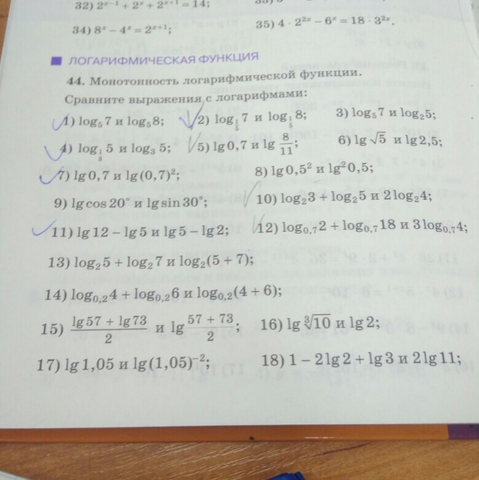 32) 2ˣ⁻¹ + 2ˣ + 2ˣ⁺¹ = 14;
34) 8ˣ − 4ˣ = 2ˣ⁺¹; 35) 4 · 2²ˣ − 6ˣ = 18 · 3²ˣ.
ЛОГАРИФМИЧЕСКАЯ ФУНКЦИЯ
44. Монотонность логарифмической функции.
Сравните выражения с логарифмами:
1) log₅7 и log₅8; 2) log_{1/5}7 и log_{1/5}8; 3) log₅7 и log₂5;
4) log_{1/3}5 и log₃5; 5) lg0,7 и lg 8/11; 6) lg√5 и lg2,5;
7) lg0,7 и lg(0,7)²; 8) lg0,5² и lg²0,5;
9) lgcos20° и lgsin30°; 10) log₂3 + log₂5 и 2log₂4;
11) lg12 − lg5 и lg5 − lg2; 12) log₀,₇2 + log₀,₇18 и 3log₀,₇4;
13) log₂5 + log₂7 и log₂(5 + 7);
14) log₀,₂4 + log₀,₂6 и log₀,₂(4 + 6);
15) (lg57 + lg73)/2 и lg (57 + 73)/2; 16) lg∛10 и lg2;
17) lg1,05 и lg(1,05)⁻²; 18) 1 − 2lg2 + lg3 и 2lg11;